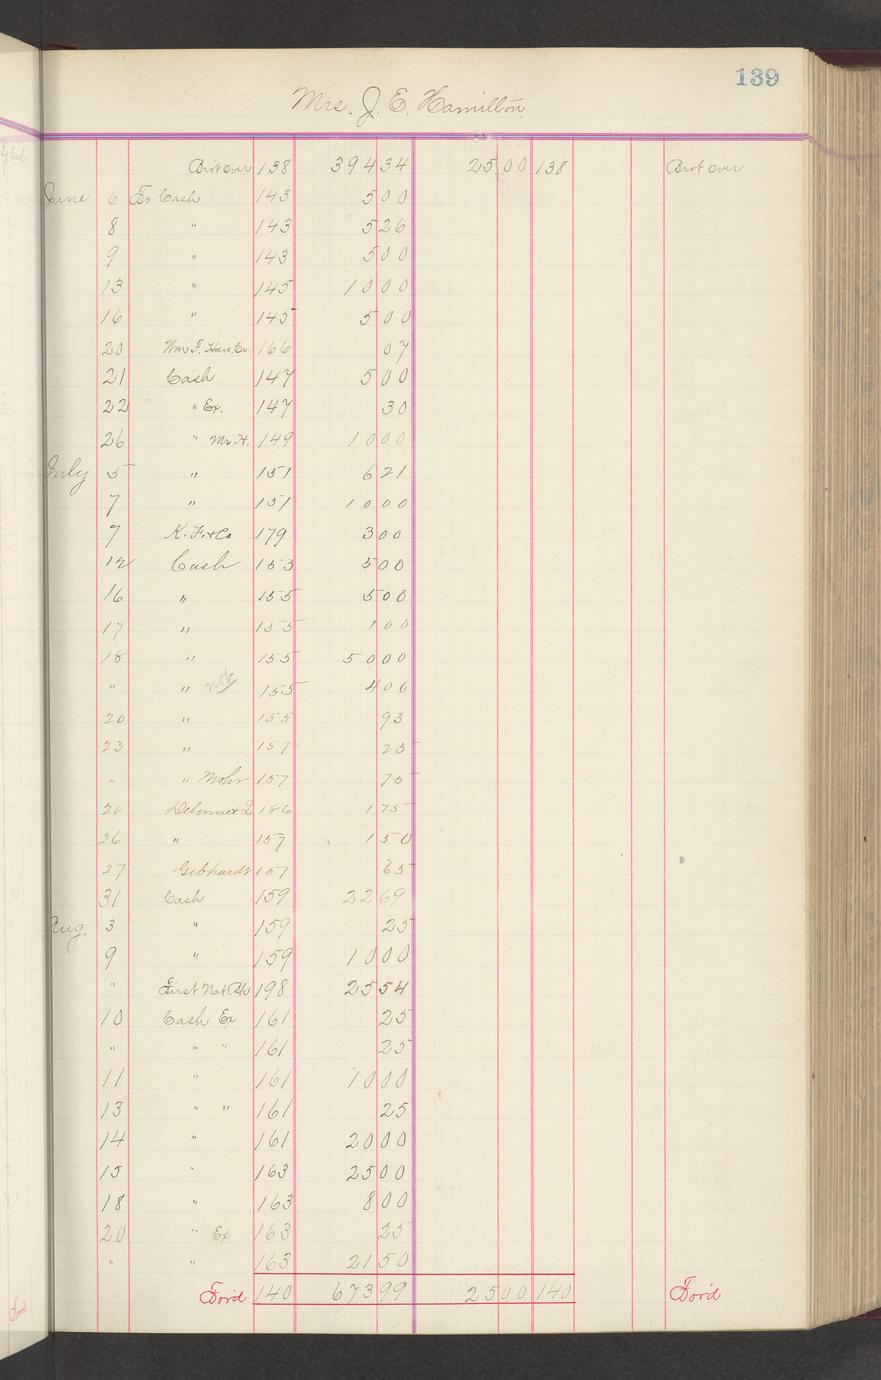 139
Mrs. J. E. Hamilton
Brot over 138 394 34 25 00 138 Brot over
June 6 To Cash 143 5 00
8 " 143 5 26
9 " 143 5 00
13 " 145 10 00
16 " 145 5 00
20 Wm F. 166 07
21 Cash 147 5 00
22 " Ex. 147 30
26 " Mr. H. 149 10 00
July 5 " 151 6 21
7 " 151 10 00
7 K. F. & Co 179 3 00
12 Cash 153 5 00
16 " 155 5 00
17 " 155 1 00
18 " 155 50 00
" " note 155 4 00
20 " 155 93
23 " 157 25
" " Mohr 157 75
20 186 1 75
26 " 157 1 50
27 Gebhardt 157 65
31 Cash 159 22 69
Aug. 3 " 159 25
9 " 159 10 00
" First Nat Bk 198 25 54
10 Cash Ex 161 25
" " " 161 25
11 " 161 10 00
13 " " 161 25
14 " 161 20 00
15 " 163 25 00
18 " 163 8 00
20 " Ex 163 25
" " 163 21 50
For'd 140 673 99 25 00 140 For'd